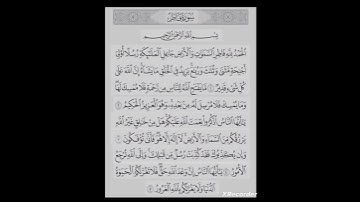 سورة فاطر
بسم الله الرحمن الرحيم
الحمد لله فاطر السموات والأرض جاعل الملئكة رسلا أولي
أجنحة مثنى وثلث وربع يزيد في الخلق ما يشاء إن الله على
كل شيء قدير ١ ما يفتح الله للناس من رحمة فلا ممسك لها
وما يمسك فلا مرسل له من بعده وهو العزيز الحكيم ٢
يأيها الناس اذكروا نعمت الله عليكم هل من خلق غير الله
يرزقكم من السماء والأرض لا إله إلا هو فأنى تؤفكون ٣
وإن يكذبوك فقد كذبت رسل من قبلك وإلى الله ترجع
الأمور ٤ يأيها الناس إن وعد الله حق فلا تغرنكم الحيوة
الدنيا ولا يغرنكم بالله الغرور ٥
XRecorder